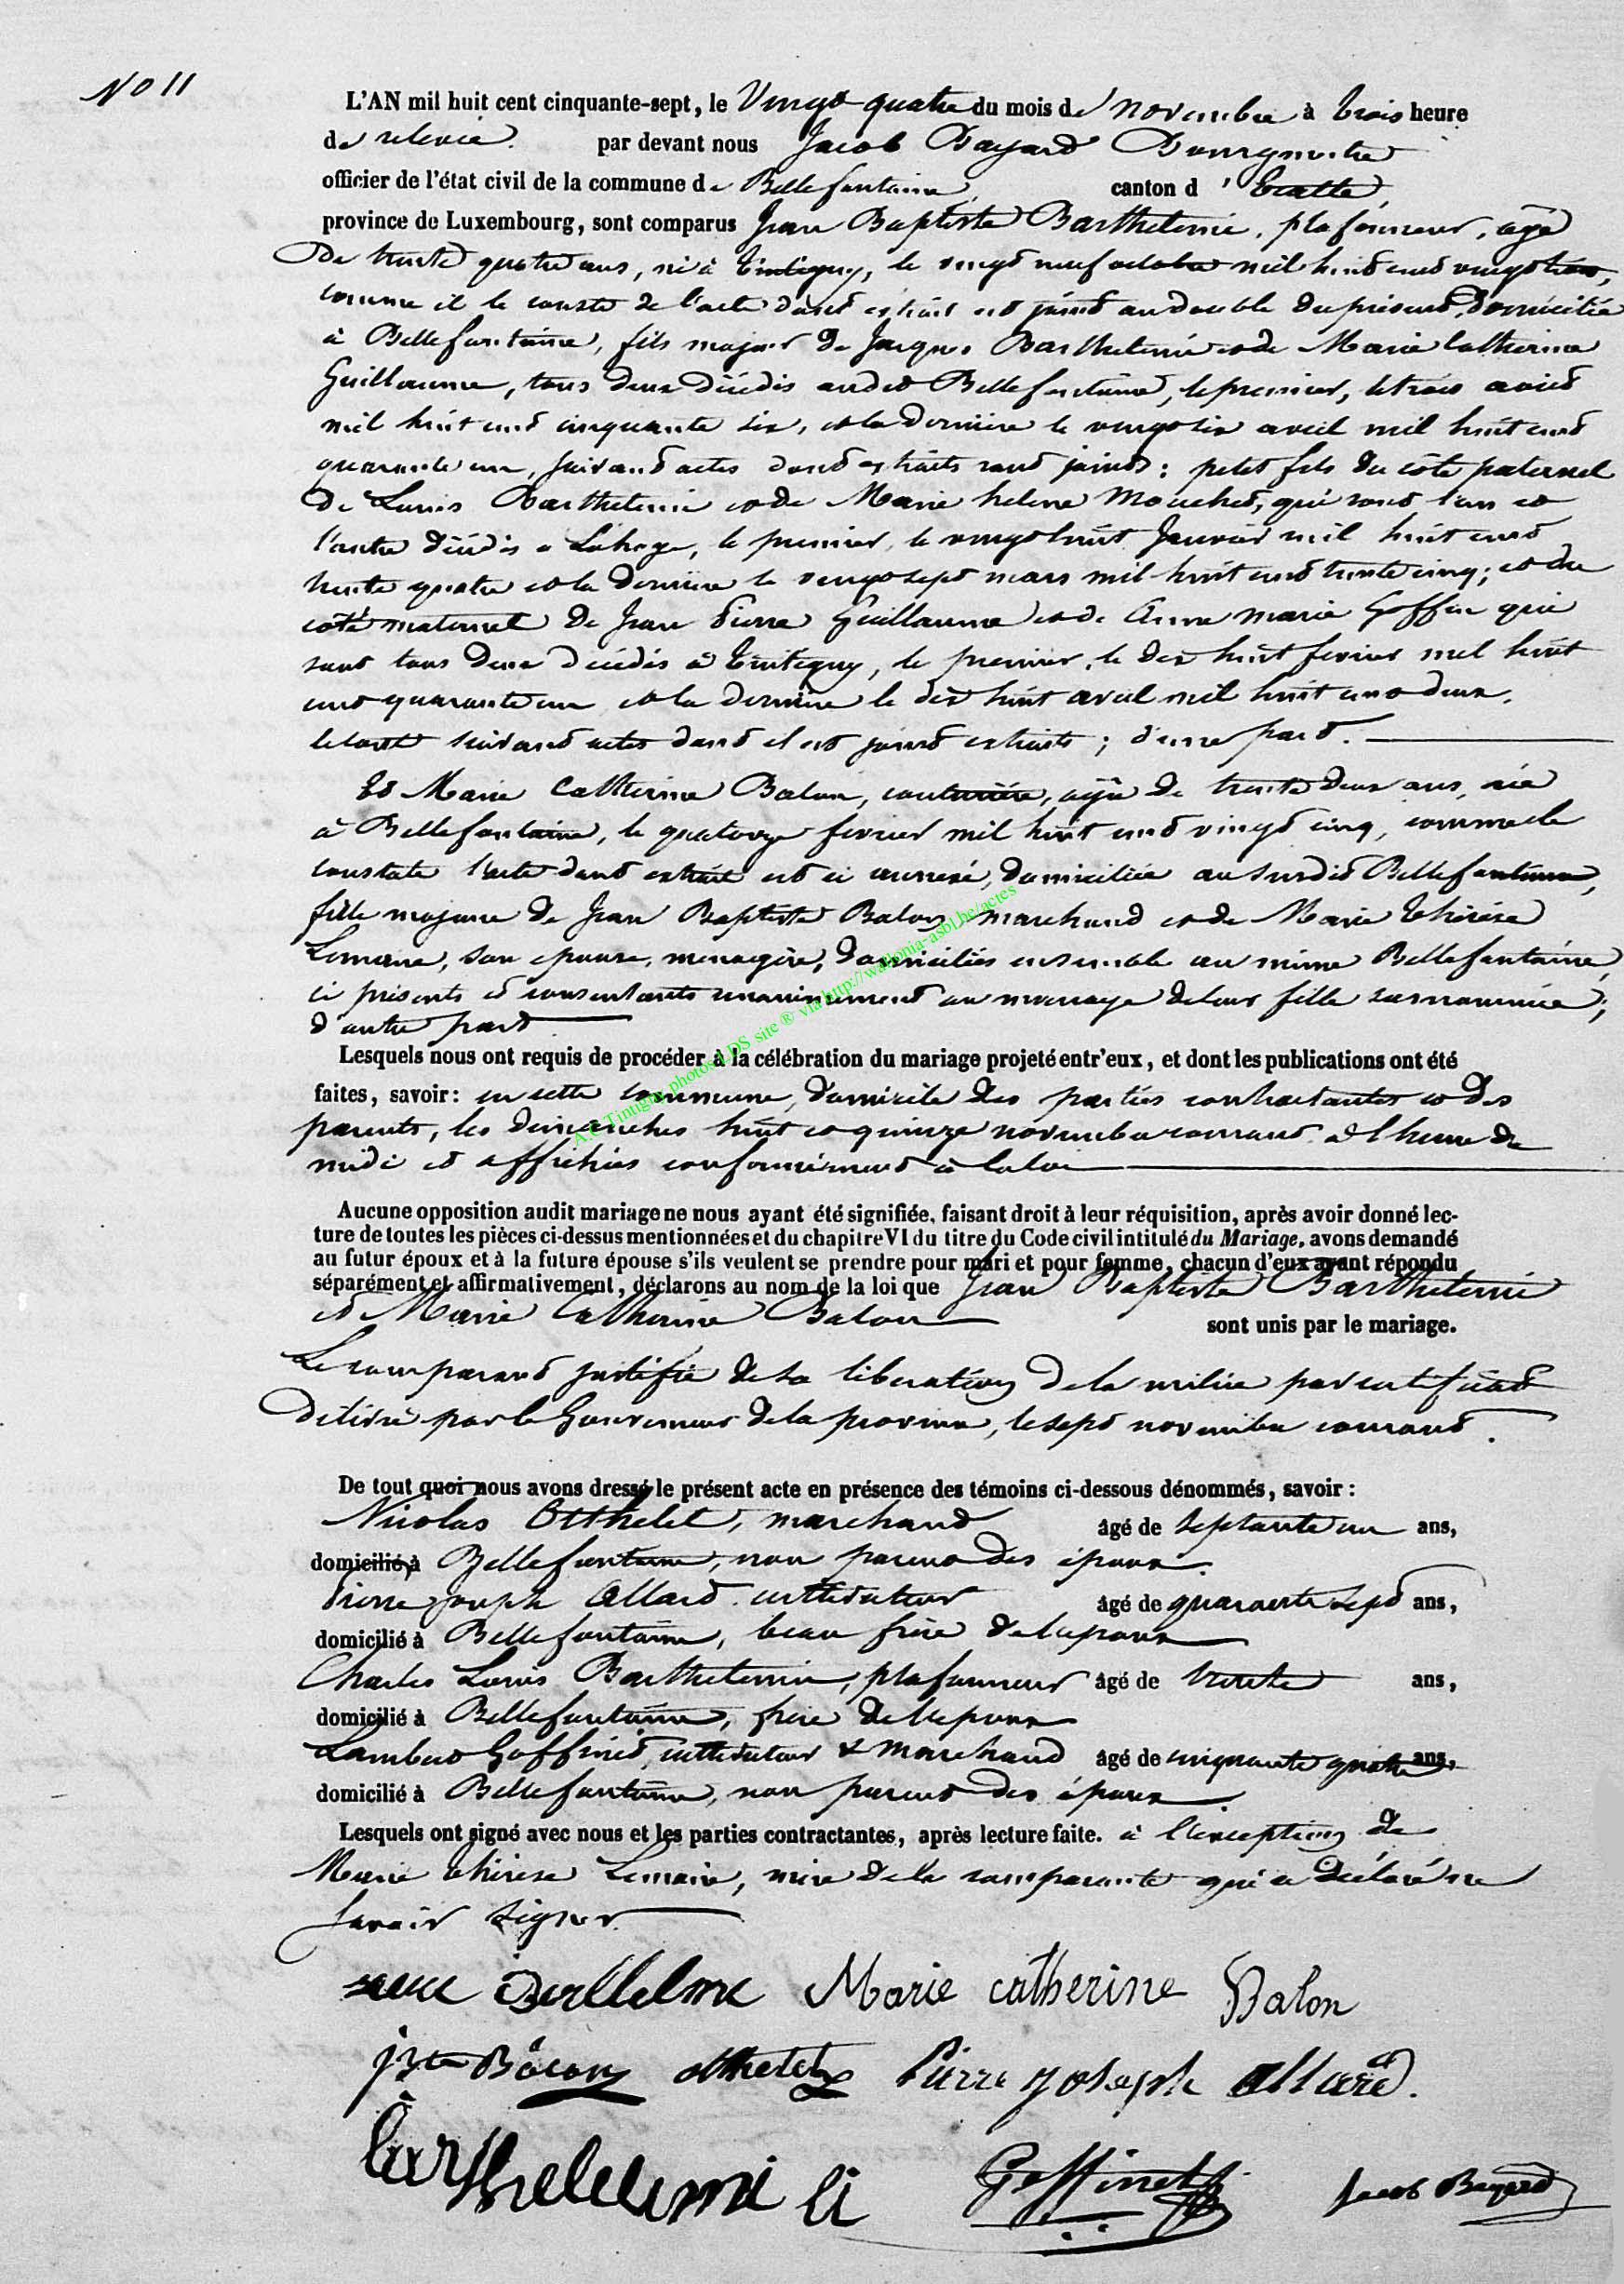 No 11
L'AN mil huit cent cinquante-sept, le Vingt quatre du mois de novembre à trois heure
de relevée. par devant nous Jacob Bayard Bourgmestre
officier de l'état civil de la commune de Bellefontaine, canton d'Etalle,
province de Luxembourg, sont comparus Jean Baptiste Barthelemie, plafonneur, agé
De trente quatre ans, né à Tintigny, le vingt neuf octobre mil huit cent vingt trois,
comme il le conste de l'acte dont extrait est joint au double du présent, domicilié
à Bellefontaine, fils majeur de Jacques Barthelemie et de Marie Catherine
Guillaume, tous deux décédés audit Bellefontaine, le premier, le trois
mil huit cent cinquante six, et la dernière le vingt six avril mil huit cent
quarante un, suivant actes dont extraits sont joints : petit fils du côté paternel
De Louis Barthelemie et de Marie helene Mouchet, qui sont l'un et
l'autre décédés a Lahage, le premier, le vingt huit Janvier mil huit cent
trente quatre et la dernière le vingt sept mars mil huit cent trente cinq ; et du
coté maternel De Jean Pierre Guillaume et de Anne marie Goffin qui
sont tous deux décédés à Tintigny, le premier, le dix huit fevrier mil huit
cent quarante un et la dernière le dix huit avril mil huit cent deux,
le tout suivant actes dont il est joint extraits ; d'une part.
Et Marie Catherine Balon, couturière, agée de trente deux ans, née
à Bellefontaine, le quatorze fevrier mil huit cent vingt cinq, comme le
constate l'acte dont extrait est ci annexé, domiciliée au susdit Bellefontaine,
fille majeure de Jean Baptiste Balon, marchand et de Marie thérèse
Lemaire, son epouse, menagère, domiciliés ensemble au même Bellefontaine,
ci présents et consentants unanimement au mariage de leur fille susnommée ;
d'autre part
Lesquels nous ont requis de procéder à la célébration du mariage projeté entr'eux, et dont les publications ont été
faites, savoir : en cette commune, domicile des parties contractantes et des
parents, les dimanches huit et quinze novembre courant à l'heure de
midi et affichées conformément à la loi
Aucune opposition audit mariage ne nous ayant été signifiée, faisant droit à leur réquisition, après avoir donné lec-
ture de toutes les pièces ci-dessus mentionnées et du chapitre VI du titre du Code civil intitulé du Mariage, avons demandé
au futur époux et à la future épouse s'ils veulent se prendre pour mari et pour femme, chacun d'eux ayant répondu
séparément et affirmativement, déclarons au nom de la loi que Jean Baptiste Barthelemie
et Marie Catherine Balon sont unis par le mariage.
Le comparant justifie de sa liberation de la milice par certificat
Délivré par le Gouverneur de la province, le sept novembre courant.
De tout quoi nous avons dressé le présent acte en présence des témoins ci-dessous dénommés, savoir :
Nicolas Otthelet, marchand âgé de septante un ans,
domicilié à Bellefontaine, non parent des époux.
Pierre joseph Allard cultivateur âgé de quarante sept ans,
domicilié à Bellefontaine, beau frère de l'epoux
Charles Louis Barthelemie, plafonneur âgé de trente ans,
domicilié à Bellefontaine, frère de l'epoux
Lambert Goffinet, cultivateur & marchand âgé de cinquante quatre ans,
domicilié à Bellefontaine, non parent des époux.
Lesquels ont signé avec nous et les parties contractantes, après lecture faite. à l'exception de
Marie thérèse Lemaire, mère de la comparante qui a déclaré ne
savoir signer.
Marie catherine Balon
jbte Balon otthelet Pierre Joseph allard.
Goffinet Jacob Bayard
A.E. Tintigny photos LDS site ® via http://wallonia-asbl.be/actes